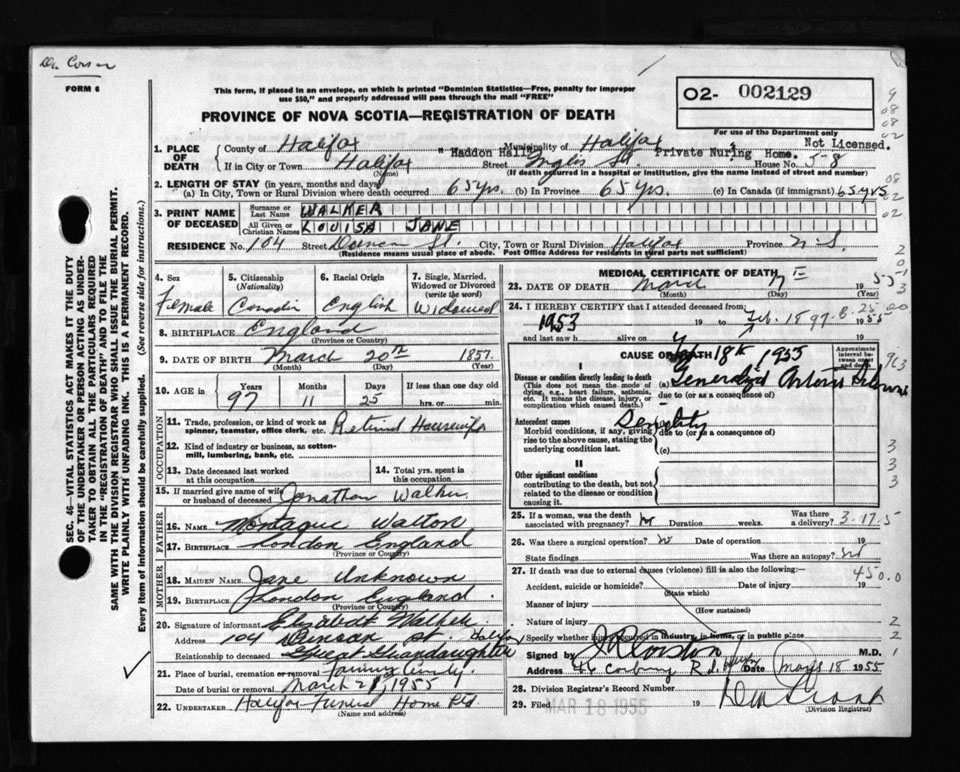 FORM 6
This form, if placed in an envelope, on which is printed "Dominion Statistics—Free, penalty for improper
use $50," and properly addressed will pass through the mail "FREE"
PROVINCE OF NOVA SCOTIA—REGISTRATION OF DEATH
O2- 002129
For use of the Department only
Not Licensed.
1. PLACE OF DEATH
County of Halifax Municipality of Halifax
If in City or Town Halifax Street "Haddon Hall" Inglis St. Private Nuring Home. House No. 5-8
(Name) (If death occurred in a hospital or institution, give the name instead of street and number)
2. LENGTH OF STAY (in years, months and days)
(a) In City, Town or Rural Division where death occurred 65 yrs. (b) In Province 65 yrs. (c) In Canada (if immigrant) 65 yrs
3. PRINT NAME OF DECEASED
Surname or Last Name WALKER
All Given or Christian Names LOUISA JANE
RESIDENCE No. 104 Street St. City, Town or Rural Division Halifax Province N.S.
(Residence means usual place of abode. Post Office Address for residents in rural parts not sufficient)
4. Sex Female
5. Citizenship (Nationality)
6. Racial Origin English
7. Single, Married, Widowed or Divorced (write the word) Widowed
8. BIRTHPLACE England
(Province or Country)
9. DATE OF BIRTH March 20th 1857
(Month) (Day) (Year)
10. AGE in Years 97 Months 11 Days 25 If less than one day old hrs. or min.
OCCUPATION
11. Trade, profession, or kind of work as spinner, teamster, office clerk, etc. Retired Housewife
12. Kind of industry or business, as cotton-mill, lumbering, bank, etc.
13. Date deceased last worked at this occupation
14. Total yrs. spent in this occupation
15. If married give name of wife or husband of deceased Jonathan Walker
FATHER
16. NAME Montague Walton
17. BIRTHPLACE London England
(Province or Country)
MOTHER
18. MAIDEN NAME Jane Unknown
19. BIRTHPLACE London England
(Province or Country)
20. Signature of informant Elizabeth
Address 104 St. Halifax
Relationship to deceased Great Grandaughter
21. Place of burial, cremation or removal
Date of burial or removal March 21, 1955
22. UNDERTAKER Halifax Funeral Home Ltd.
(Name and address)
MEDICAL CERTIFICATE OF DEATH
23. DATE OF DEATH March 17 1955
(Month) (Day) (Year)
24. I HEREBY CERTIFY that I attended deceased from:
1953 19 to Feb. 18 1955
and last saw h alive on 18th 1955
CAUSE OF DEATH
Approximate interval between onset and death
I
Disease or condition directly leading to death
(This does not mean the mode of dying, e.g., heart failure, asthenia, etc. It means the disease, injury, or complication which caused death.)
(a) Generalized
due to (or as a consequence of)
Antecedent causes
Morbid conditions, if any, giving rise to the above cause, stating the underlying condition last.
due to (or as a consequence of)
(c)
II
Other significant conditions
contributing to the death, but not related to the disease or condition causing it.
25. If a woman, was the death associated with pregnancy? Duration weeks. Was there a delivery? 3-17-5
26. Was there a surgical operation?
State findings Was there an autopsy? no
27. If death was due to external causes (violence) fill in also the following:— 450.0
Accident, suicide or homicide? Date of injury 19
(State which)
Manner of injury
(How sustained)
Nature of injury
Specify whether injury occurred in industry, in home, or in public place
Signed by M.D.
Address 46 Date 18 1955
28. Division Registrar's Record Number
29. Filed MAR 18 1955 19
(Division Registrar)
SEC. 46—VITAL STATISTICS ACT MAKES IT THE DUTY
OF THE UNDERTAKER OR PERSON ACTING AS UNDER-
TAKER TO OBTAIN ALL THE PARTICULARS REQUIRED
IN THE "REGISTRATION OF DEATH" AND TO FILE THE
SAME WITH THE DIVISION REGISTRAR WHO SHALL ISSUE THE BURIAL PERMIT.
WRITE PLAINLY WITH UNFADING INK. THIS IS A PERMANENT RECORD.
Every item of information should be carefully supplied. (See reverse side for instructions.)